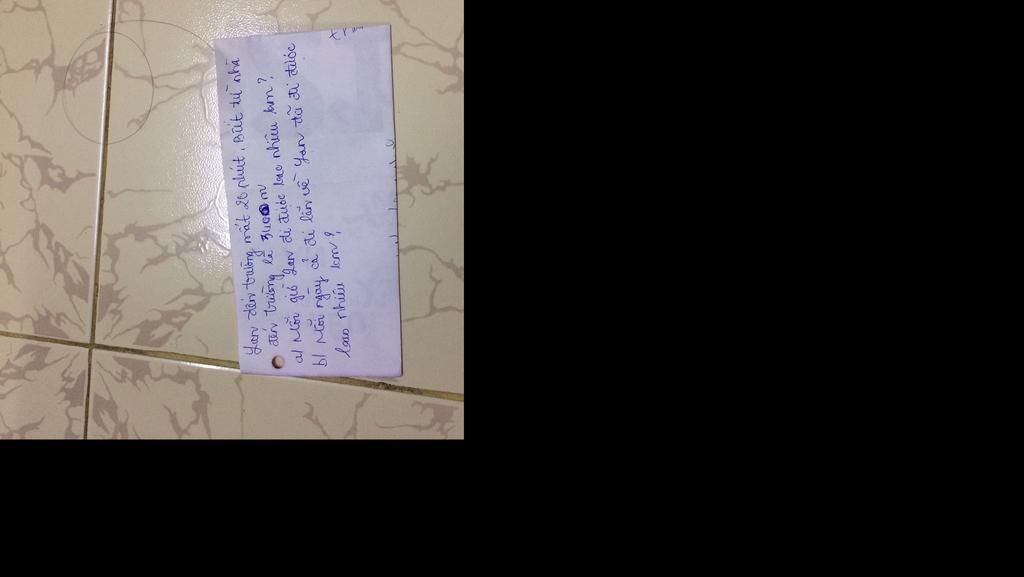 Lan đến trường mất 20 phút, Biết từ nhà
đến trường là 3400 m
a) Mỗi giờ Lan đi được bao nhiêu km?
b) Mỗi ngày cả đi lẫn về Lan đã đi được
bao nhiêu km?